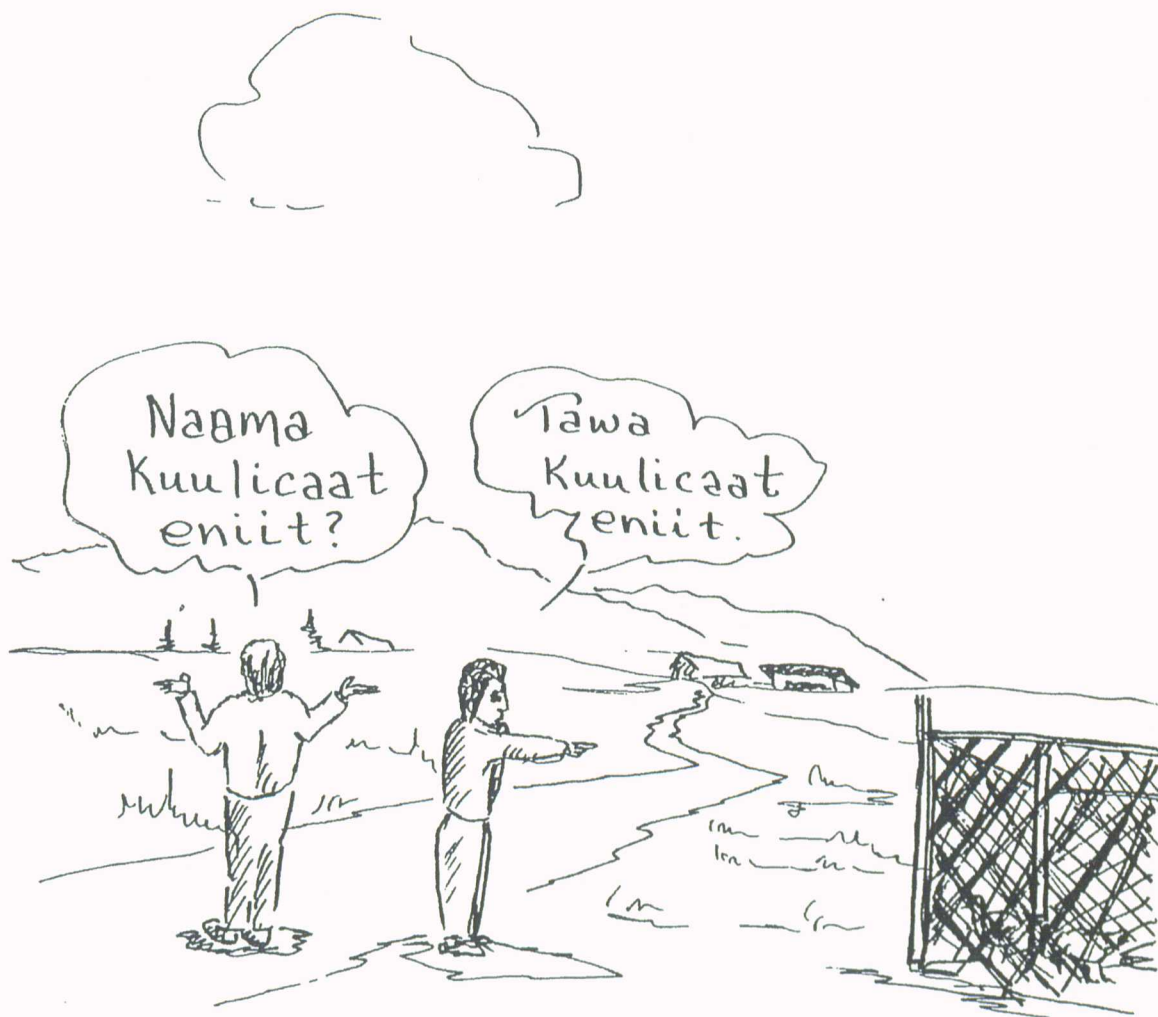 Naama
Kuulicaat
eniit?
Tawa
Kuulicaat
eniit.